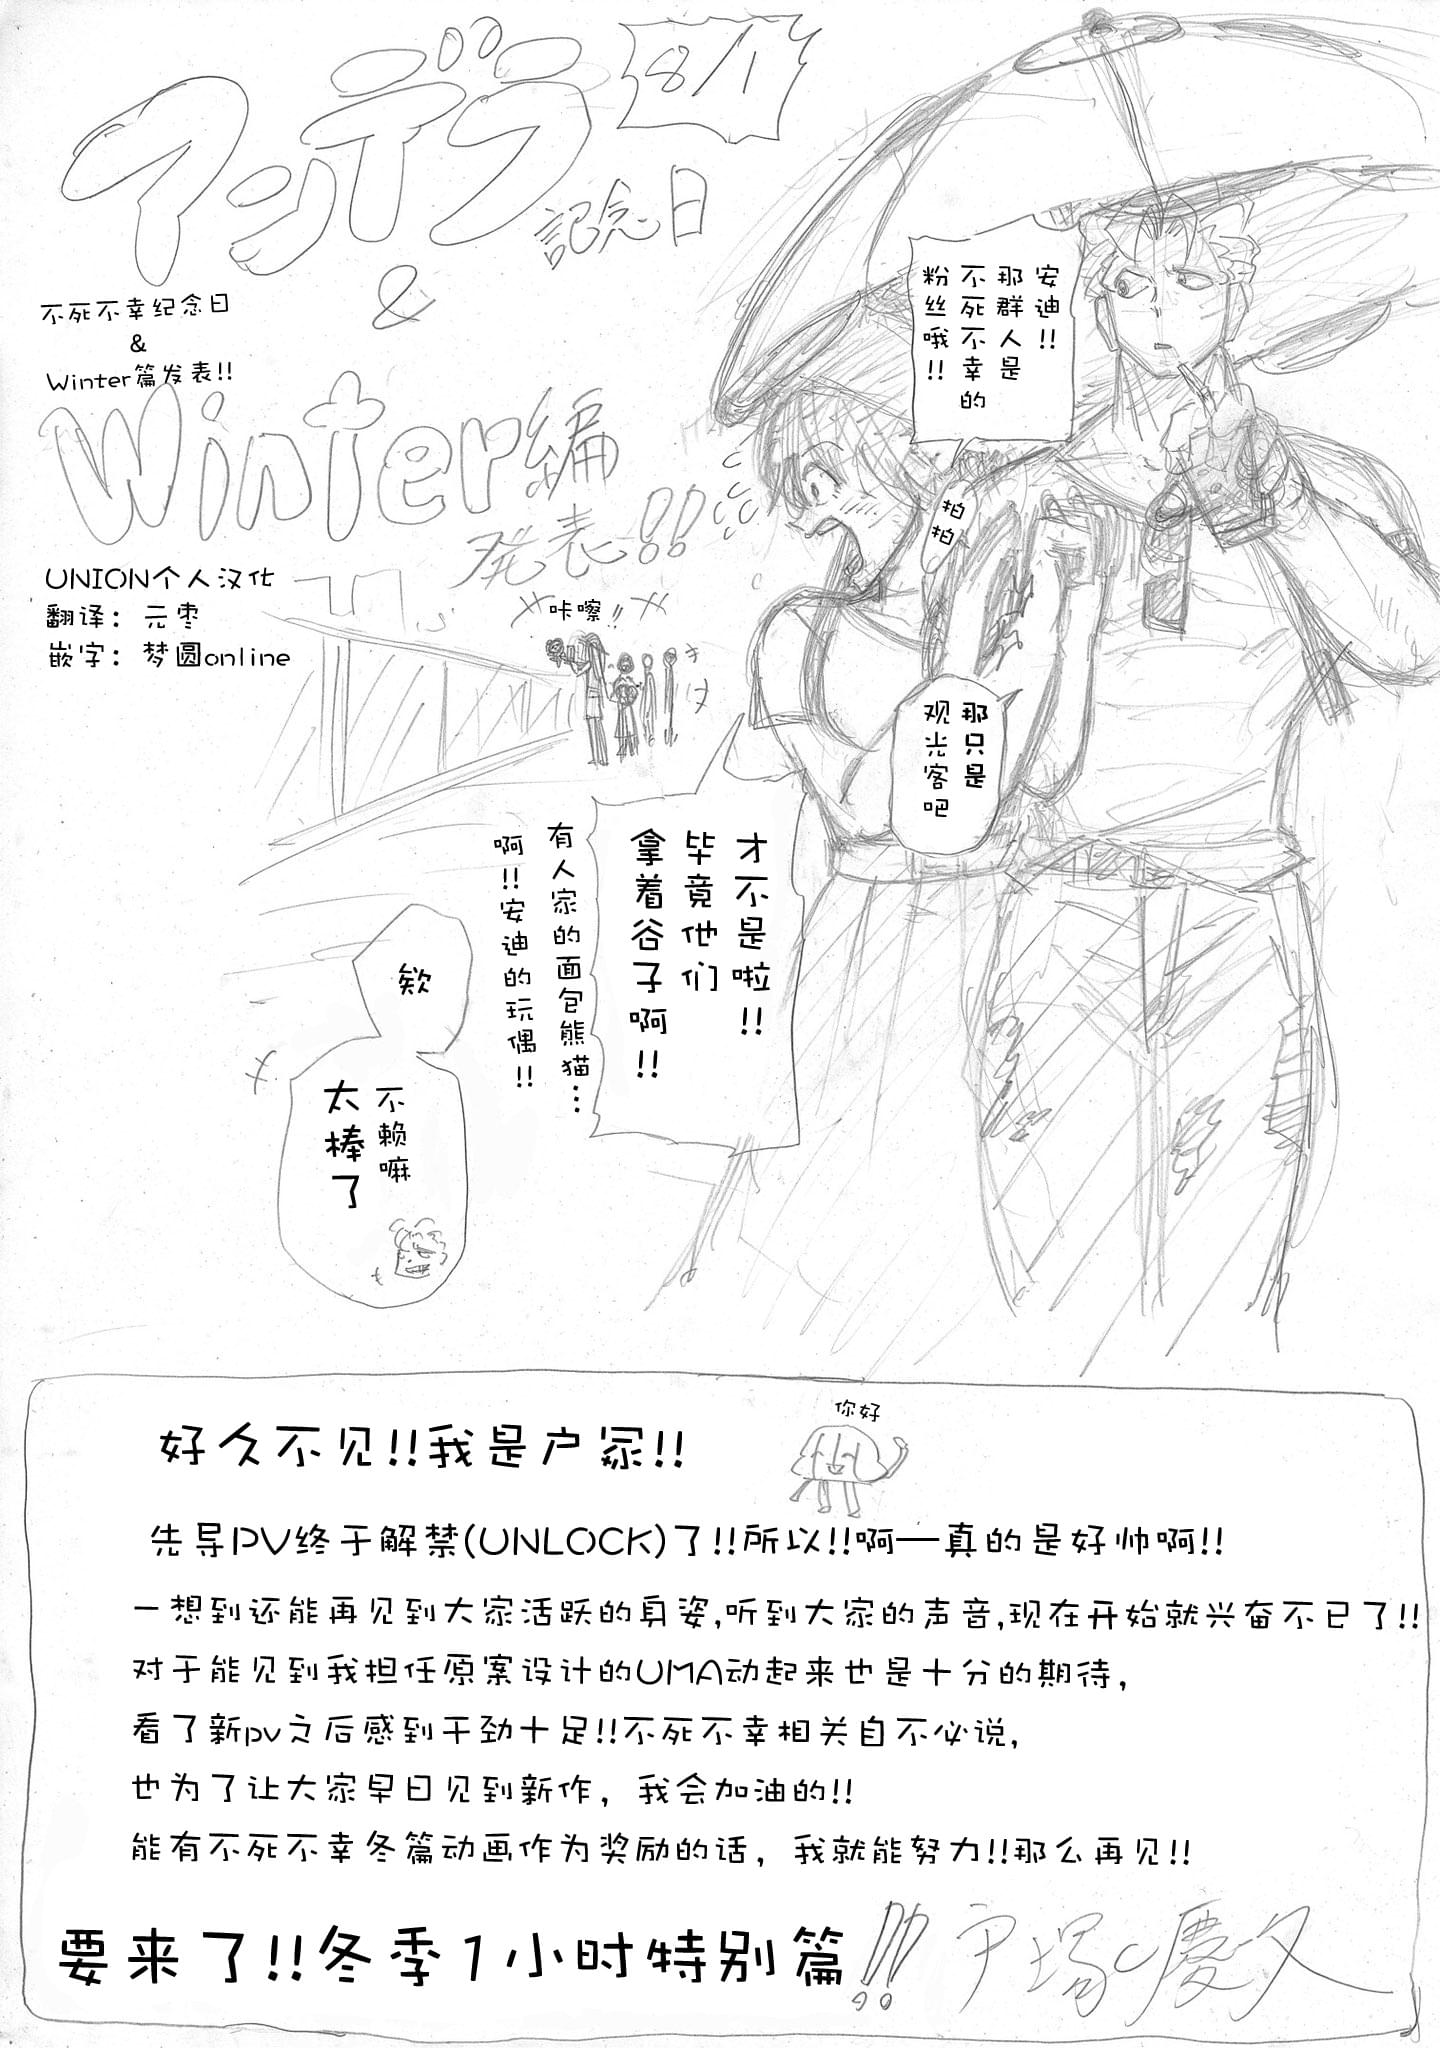 アンデラ
8/1
記念日
&
不死不幸纪念日
&
Winter篇发表!!
Winter編
発表!!
UNION个人汉化
翻译：元枣
嵌字：梦圆online
安迪!!
那群人是
不死不幸的
粉丝哦!!
拍
拍
咔嚓!!
那只是
观光客吧
才不是啦!!
毕竟他们
拿着谷子啊!!
有人家的面包熊猫…
啊!!安迪的玩偶!!
欸
不赖嘛
太棒了
好久不见!!我是户冢!!
你好
先导PV终于解禁(UNLOCK)了!!所以!!啊—真的是好帅啊!!
一想到还能再见到大家活跃的身姿,听到大家的声音,现在开始就兴奋不已了!!
对于能见到我担任原案设计的UMA动起来也是十分的期待,
看了新pv之后感到干劲十足!!不死不幸相关自不必说,
也为了让大家早日见到新作，我会加油的!!
能有不死不幸冬篇动画作为奖励的话，我就能努力!!那么再见!!
要来了!!冬季1小时特别篇!!!
戸塚慶文